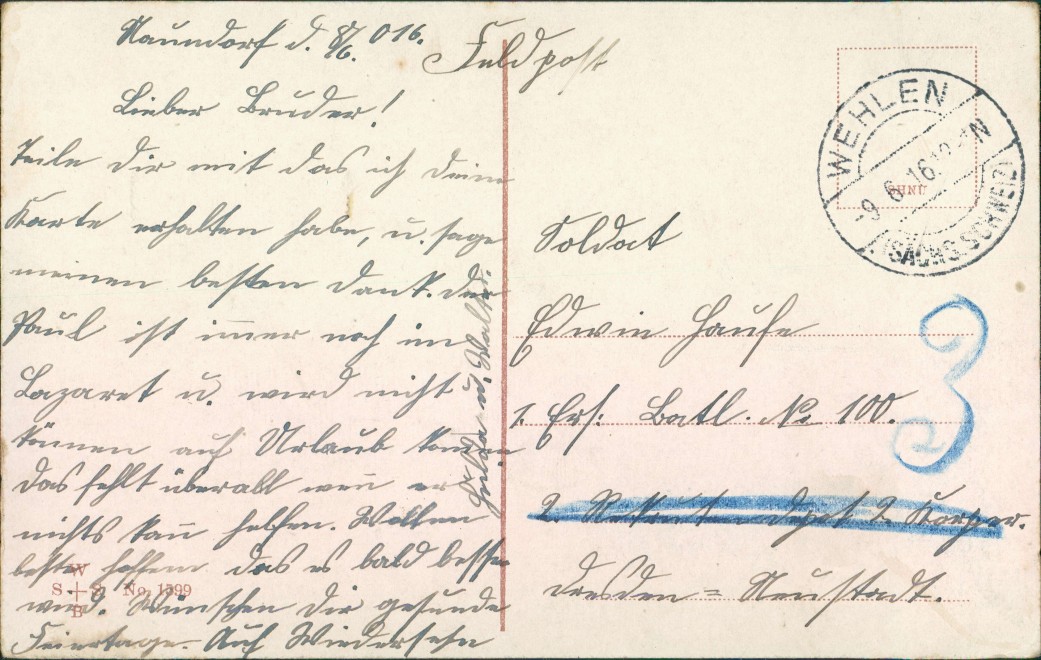 Naundorf d. 8/6. 016.
Lieber Bruder!
Teile dir mit das ich deine
Karte erhalten habe, u. sage
meinen besten Dank. der
Paul ist im̄er noch im
Lazaret u. wird nicht
kön̄en auf Urlaub kom̄en
das fehlt überall wen̄ er
nichts kan̄ helfen. Wollen
beste hoffen das es bald besser
wird. Wünschen dir gesunde
Feiertage. Auf Wiedersehn
Hulda u. Walter.
W
S + S No. 1399
B
Feldpost
WEHLEN
-9.6.16. N
(SÄCHS. SCHWEIZ)
Soldat
Edwin Haufe
1. Ers. Batl. No 100.
2. Rekrut.=depot 2. Korper.
Dresden = Neustadt.
3